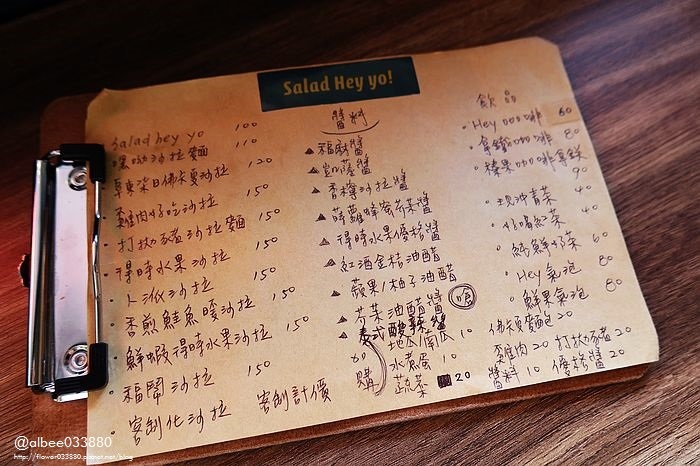 Salad Hey yo!
Salad hey yo 100
嘿呦沙拉麵 110
阜東柒日佛卡夏沙拉 120
雞肉好吃沙拉 150
打拋豬沙拉麵 150
得時水果沙拉 150
卜派沙拉 150
香煎鮭魚暖沙拉 150
鮮蝦得時水果沙拉 150
福鬧沙拉 150
客制化沙拉 客制計價
醬料
福麻醬
凱薩醬
香檸沙拉醬
蒔蘿蜂蜜芥茉醬
得時水果優格醬
紅酒金桔油醋
蘋果/柚子油醋
芥茉油醋醬
泰式酸辣醬
嗆
加購
地瓜/南瓜 10
水煮蛋 10
蔬菜 20
飲品
Hey 咖啡 60
拿鐵咖啡 80
榛果咖啡拿鐵 80
現沖青茶 40
好喝紅茶 40
純鮮奶茶 60
Hey 氣泡 80
鮮果氣泡 80
佛卡夏麵包 20
雞肉 20 打拋豬 20
醬料 10 優格醬 20
@albee033880
http://flower033880.pixnet.net/blog